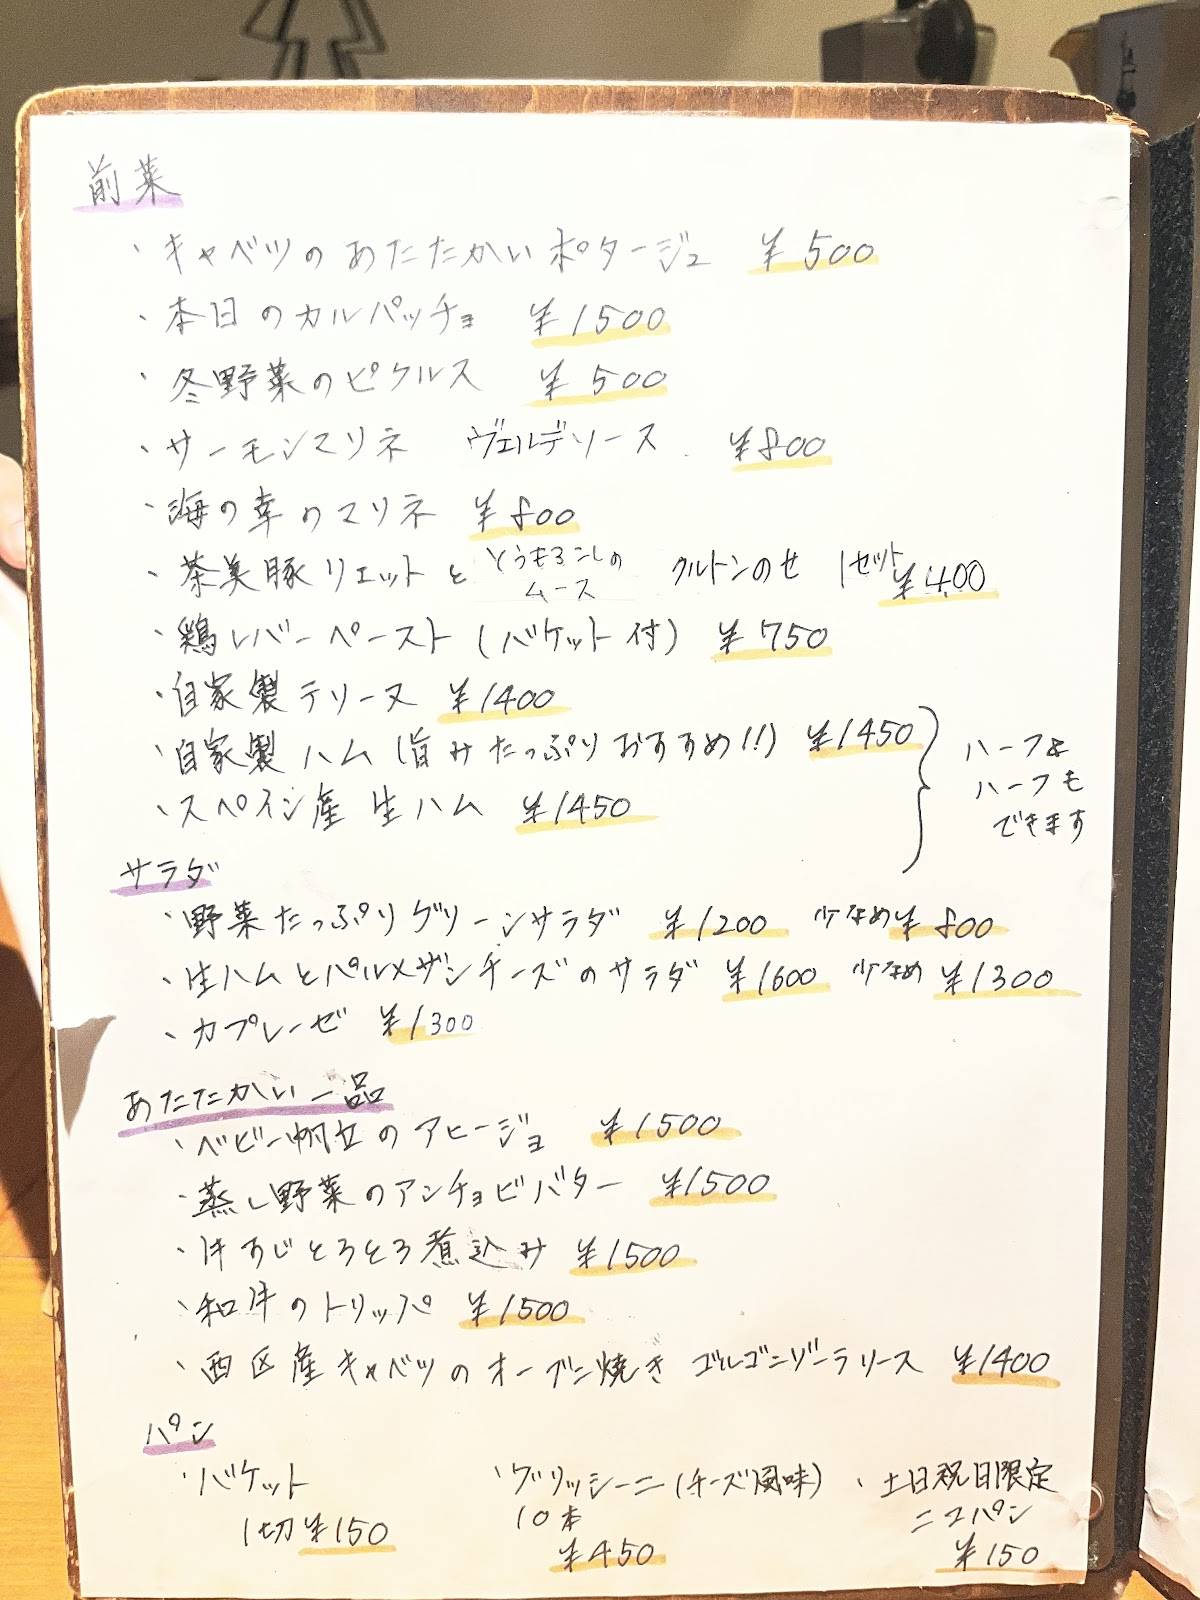 前菜
・キャベツのあたたかいポタージュ ¥500
・本日のカルパッチョ ¥1500
・冬野菜のピクルス ¥500
・サーモンマリネ ヴェルデソース ¥800
・海の幸のマリネ ¥800
・茶美豚リエットと とうもろこしの ムース クルトンのせ 1セット ¥400
・鶏レバーペースト (バケット付) ¥750
・自家製テリーヌ ¥1400
・自家製ハム (旨みたっぷりおすすめ!!) ¥1450
・スペイン産 生ハム ¥1450
ハーフ&
ハーフも
できます
サラダ
・野菜たっぷりグリーンサラダ ¥1200 少なめ ¥800
・生ハムとパルメザンチーズのサラダ ¥1600 少なめ ¥1300
・カプレーゼ ¥1300
あたたかい一品
・ベビー帆立のアヒージョ ¥1500
・蒸し野菜のアンチョビバター ¥1500
・牛すじとろとろ煮込み ¥1500
・和牛のトリッパ ¥1500
・西区産キャベツのオーブン焼き ゴルゴンゾーラソース ¥1400
パン
・バケット
1切 ¥150
・グリッシーニ (チーズ風味)
10本
¥450
・土日祝日限定
ニコパン
¥150